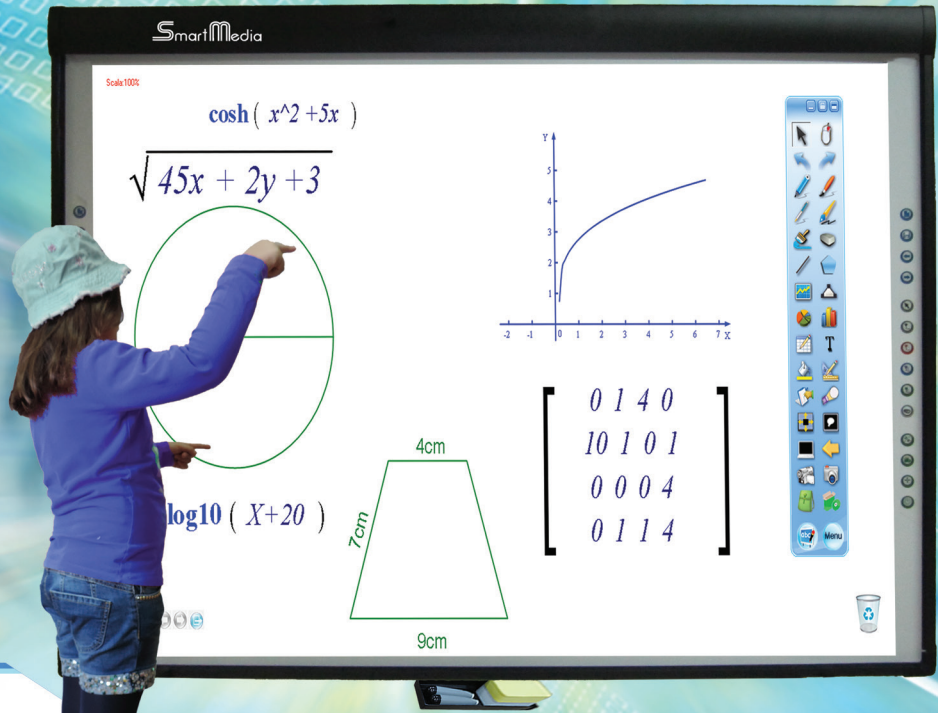 SmartMedia
Scala:100%
cosh ( x^2 +5x )
√45x + 2y +3
Y
5
4
3
2
1
-2 -1 0 1 2 3 4 5 6 7 X
0 1 4 0
10 1 0 1
0 0 0 4
0 1 1 4
4cm
7cm
9cm
log10 ( X+20 )
T
abc
Menu